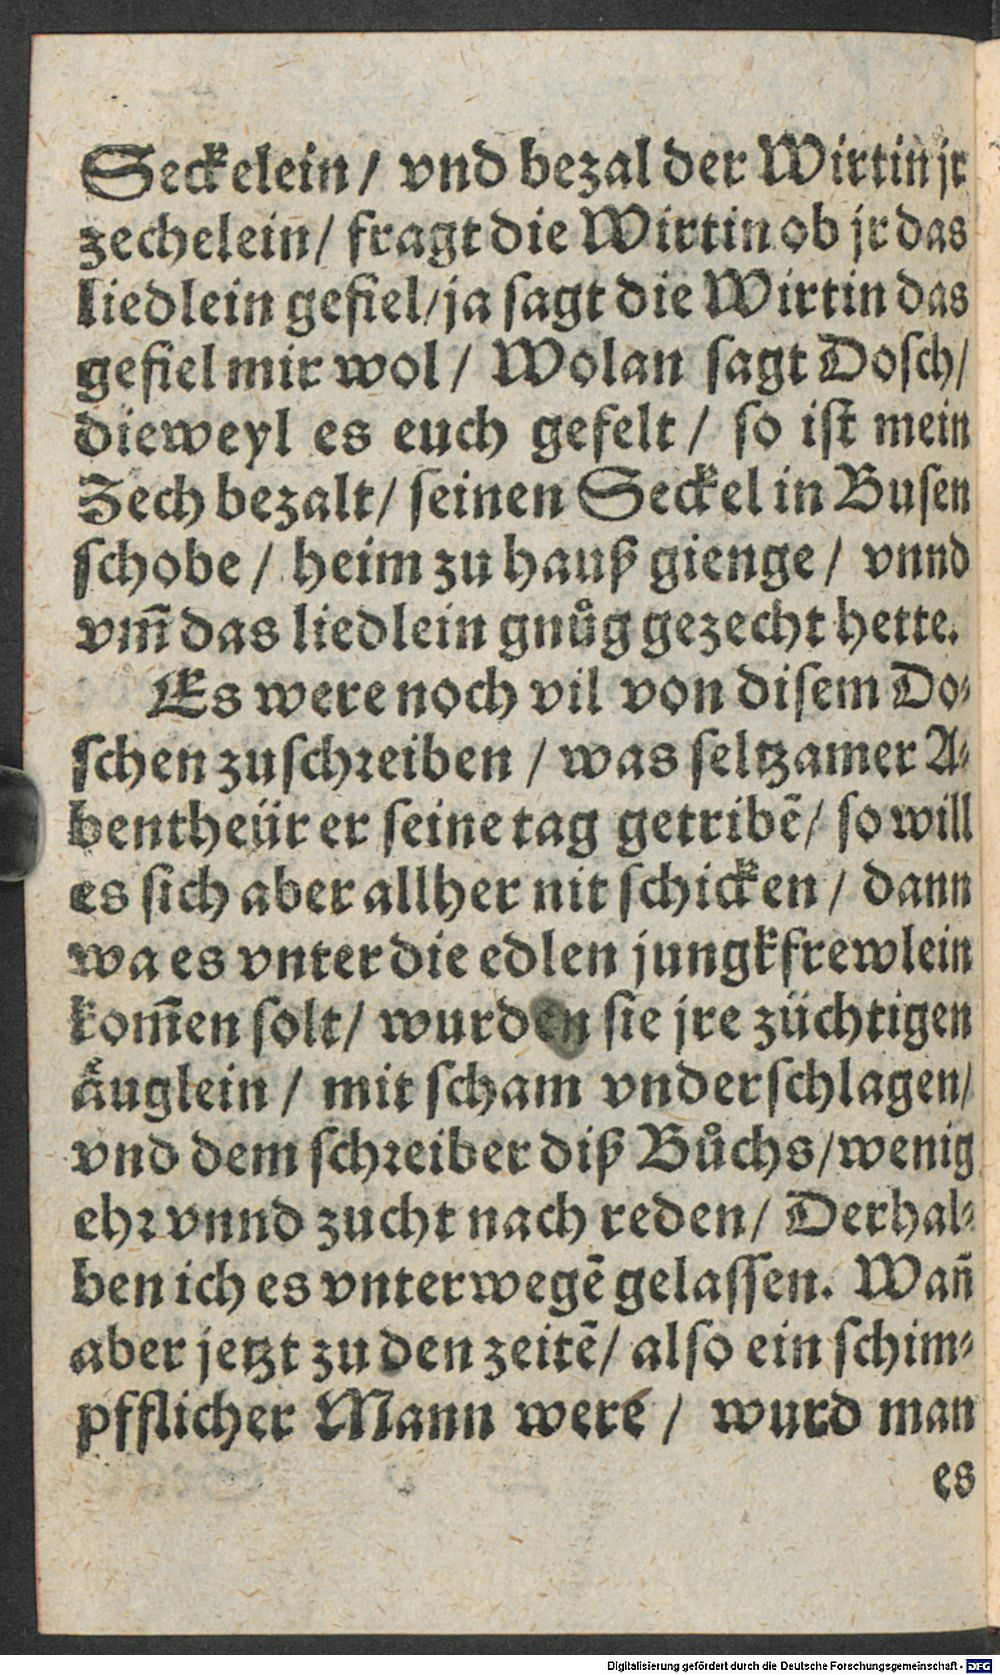 Seckelein / vnd bezal der Wirtin jr
zechelein / fragt die Wirtin ob jr das
liedlein gefiel / ja sagt die Wirtin das
gefiel mir wol / Wolan sagt Dosch /
dieweyl es euch gefelt / so ist mein
Zech bezalt / seinen Seckel in Busen
schobe / heim zu hauß gienge / vnnd
vm̄ das liedlein gnůg gezecht hette.
Es were noch vil von disem Do-
schen zuschreiben / was seltzamer A-
bentheür er seine tag getribē / so will
es sich aber allher nit schicken / dann
wa es vnter die edlen jungkfrewlein
kom̄en solt / wurden sie jre züchtigen
aͤuglein / mit scham vnderschlagen /
vnd dem schreiber diß Bůchs / wenig
ehr vnnd zucht nach reden / Derhal-
ben ich es vnterwegē gelassen. Wan̄
aber jetzt zu den zeitē / also ein schim-
pfflicher Mann were / wurd man
es
Digitalisierung gefördert durch die Deutsche Forschungsgemeinschaft - DFG